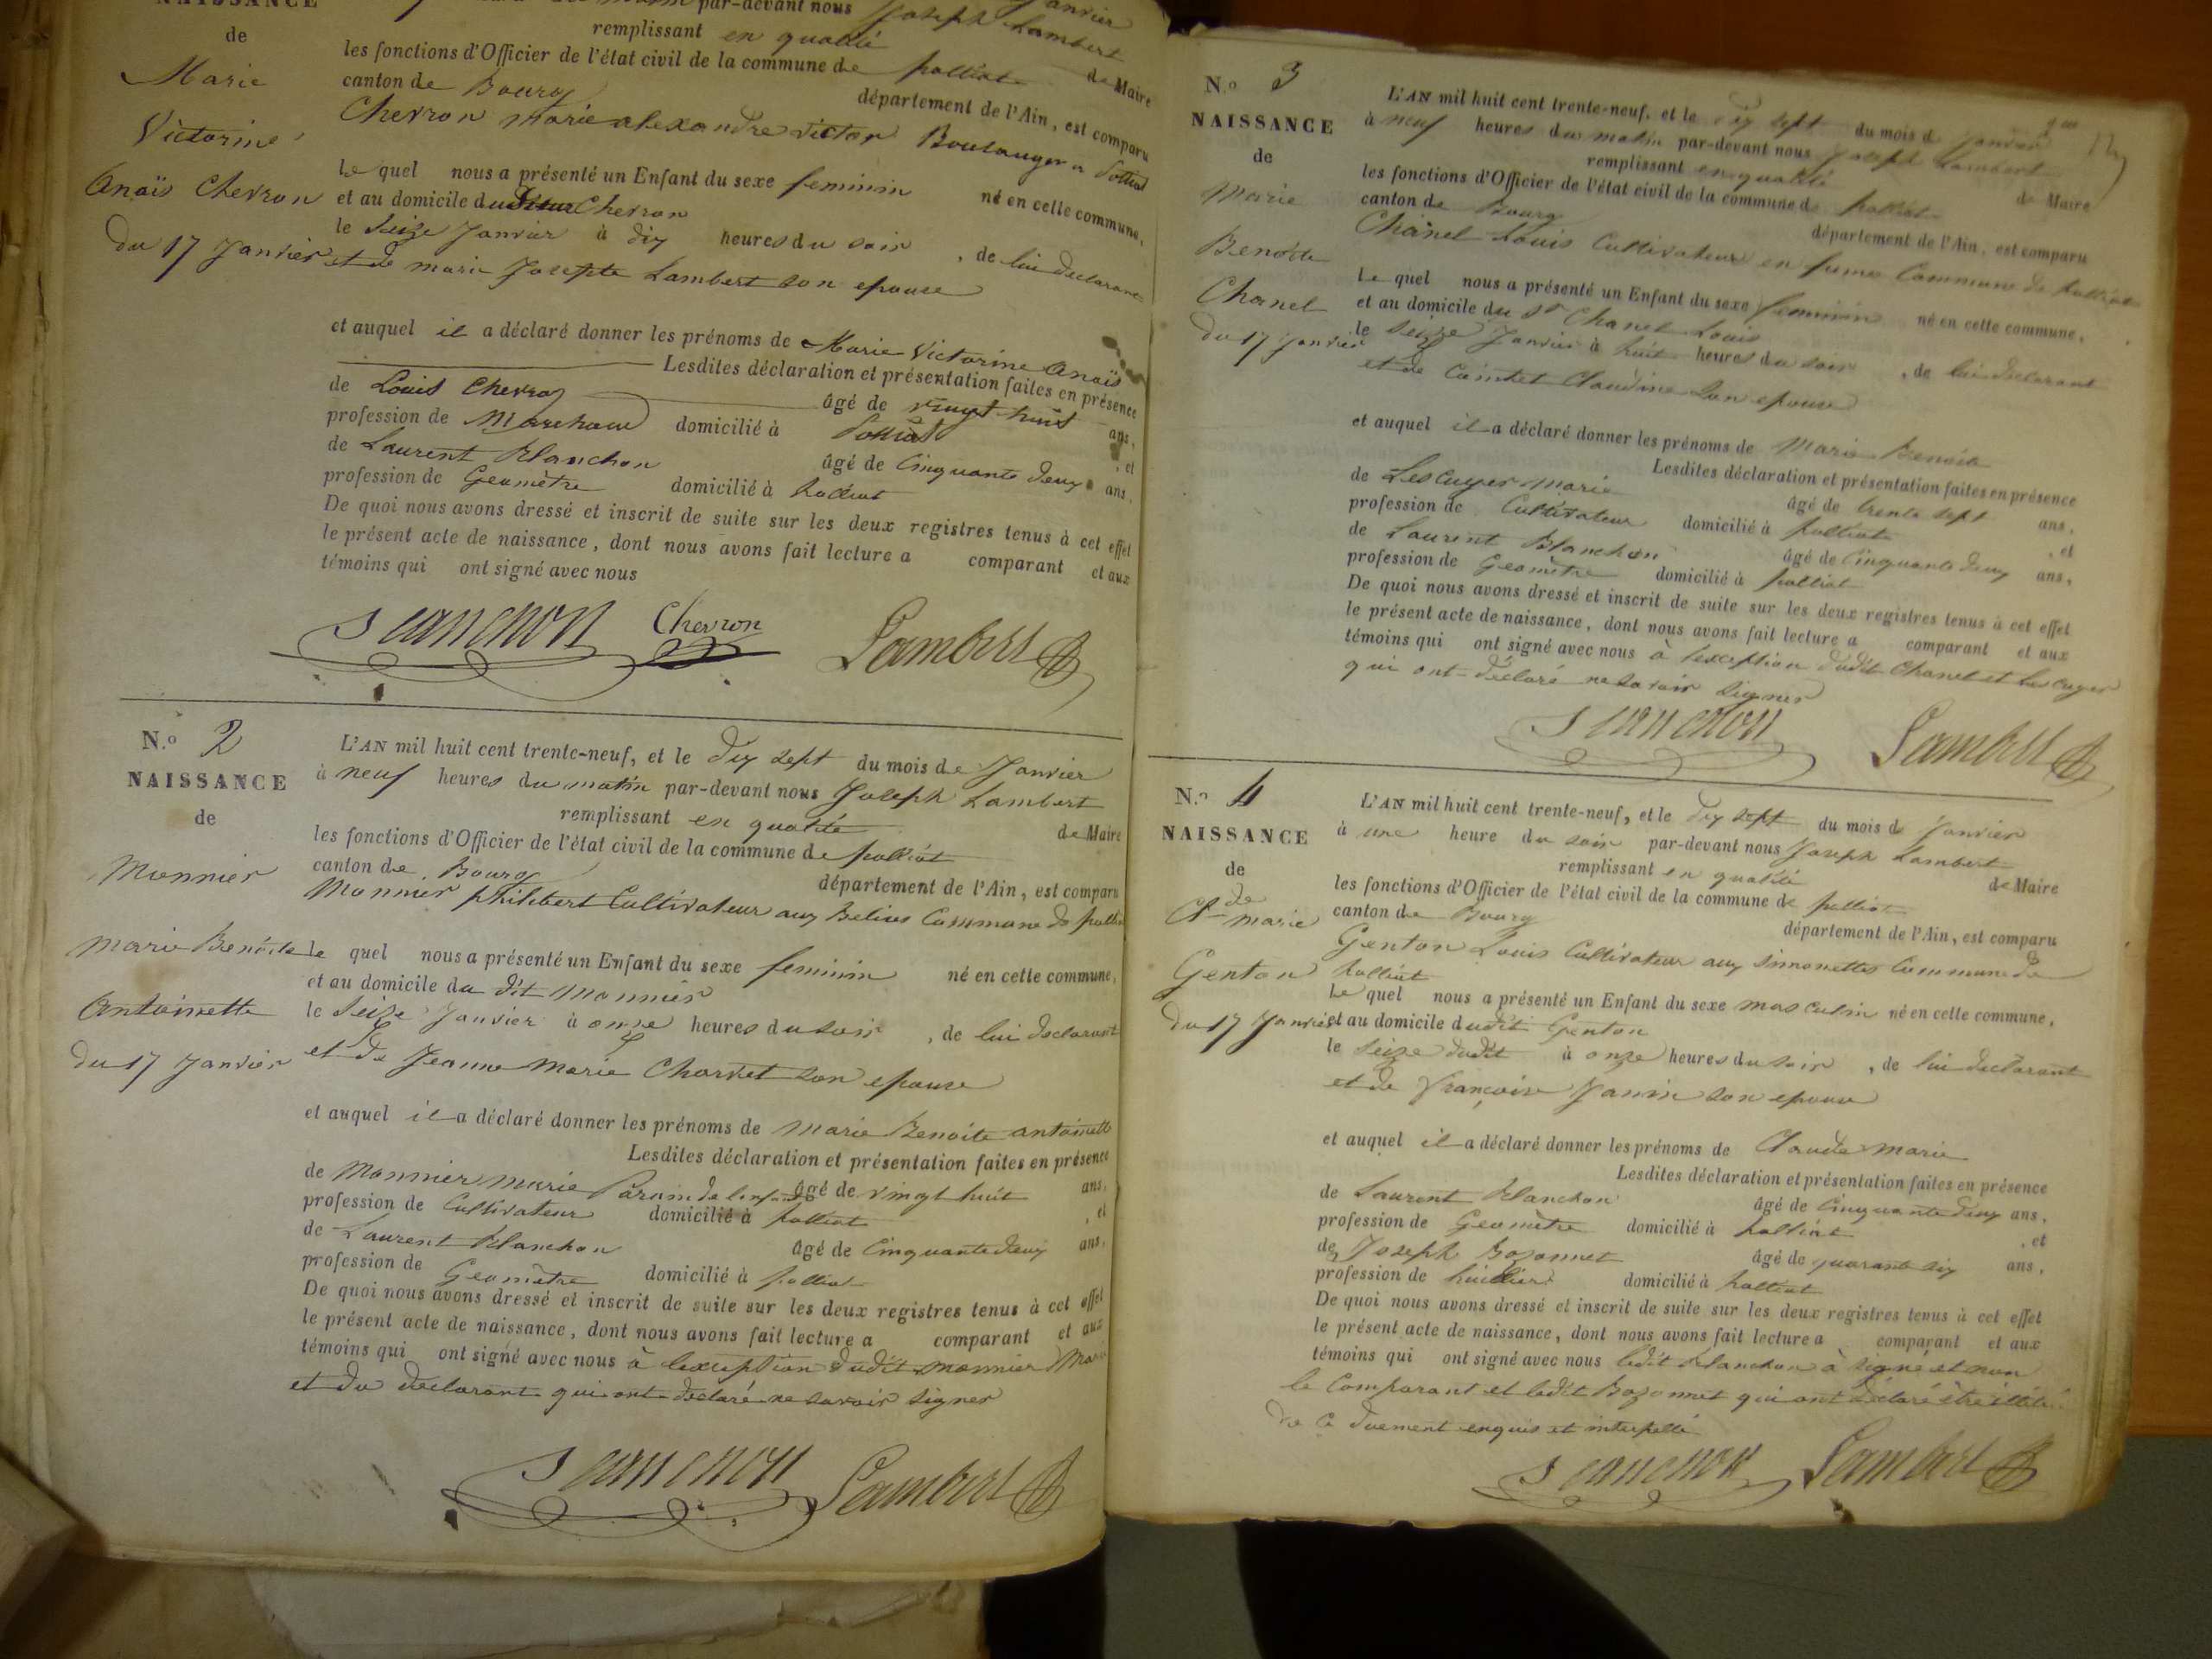 NAISSANCE
de
Marie
Victorine
Anaïs Chevron
du 17 Janvier
Janvier
par-devant nous Joseph Lambert
remplissant en qualité de Maire
les fonctions d'Officier de l'état civil de la commune de polliat
canton de Bourg département de l'Ain, est comparu
Chevron marie alexandre victor Boulanger a Polliat
Le quel nous a présenté un Enfant du sexe feminin né en cette commune,
et au domicile du Chevron
le seize Janvier à dix heures du soir, de lui declarant
et de marie Josepte Lambert son epouse
et auquel il a déclaré donner les prénoms de Marie Victorine Anaïs
Lesdites déclaration et présentation faites en présence
de Louis Chevron âgé de vingt huit ans,
profession de Marchand domicilié à Polliat, et
de Laurent Blanchon âgé de Cinquante deux ans,
profession de Geomètre domicilié à polliat
De quoi nous avons dressé et inscrit de suite sur les deux registres tenus à cet effet
le présent acte de naissance, dont nous avons fait lecture a comparant et aux
témoins qui ont signé avec nous
Chevron Lambert
N.o 2
NAISSANCE
de
Monnier
Marie Benoite
Antoinette
du 17 Janvier
L'AN mil huit cent trente-neuf, et le dix sept du mois de Janvier
à neuf heures du matin par-devant nous Joseph Lambert
remplissant en qualité de Maire
les fonctions d'Officier de l'état civil de la commune de polliat
canton de Bourg département de l'Ain, est comparu
Monnier philibert Cultivateur aux Belins Commune de
le quel nous a présenté un Enfant du sexe feminin né en cette commune,
et au domicile du dit Monnier
le seize Janvier à onze heures du soir, de lui declarant
et de Jeanne Marie Charvet son epouse
et auquel il a déclaré donner les prénoms de Marie Benoite antoinette
Lesdites déclaration et présentation faites en présence
de Monnier Marie Parain de lenfant âgé de vingt huit ans,
profession de Cultivateur domicilié à polliat, et
de Laurent Blanchon âgé de Cinquante deux ans,
profession de Geomètre domicilié à polliat
De quoi nous avons dressé et inscrit de suite sur les deux registres tenus à cet effet
le présent acte de naissance, dont nous avons fait lecture a comparant et aux
témoins qui ont signé avec nous à lexception dudit Monnier
et du declarant qui ont declaré ne savoir signer
Lambert
N.o 3
NAISSANCE
de
Marie
Benoite
Chanel
du 17 Janvier
L'AN mil huit cent trente-neuf, et le dix sept du mois de Janvier
à neuf heures du matin par-devant nous Joseph Lambert
remplissant en qualité de Maire
les fonctions d'Officier de l'état civil de la commune de polliat
canton de Bourg département de l'Ain, est comparu
Chanel Louis Cultivateur en Commune de polliat
Le quel nous a présenté un Enfant du sexe feminin né en cette commune,
et au domicile du Sr Chanel Louis
le seize Janvier à huit heures du soir, de lui declarant
et de Claudine son epouse
et auquel il a déclaré donner les prénoms de Marie Benoite
Lesdites déclaration et présentation faites en présence
de Lescuyer Marie âgé de trente sept ans,
profession de Cultivateur domicilié à polliat, et
de Laurent Blanchon âgé de Cinquante deux ans,
profession de Geomètre domicilié à polliat
De quoi nous avons dressé et inscrit de suite sur les deux registres tenus à cet effet
le présent acte de naissance, dont nous avons fait lecture a comparant et aux
témoins qui ont signé avec nous à lexception dudit Chanel et Lescuyer
qui ont déclaré ne savoir signer
Lambert
N.o 4
NAISSANCE
de
Cl de marie
Genton
Du 17 Janvier
L'AN mil huit cent trente-neuf, et le dix sept du mois de Janvier
à une heure du soir par-devant nous Joseph Lambert
remplissant en qualité de Maire
les fonctions d'Officier de l'état civil de la commune de polliat
canton de Bourg département de l'Ain, est comparu
Genton Louis Cultivateur aux simonettes Commune de
polliat
Le quel nous a présenté un Enfant du sexe masculin né en cette commune,
et au domicile dudit Genton
le seize dudit à onze heures du soir, de lui declarant
et de françoise Janin son epouse
et auquel il a déclaré donner les prénoms de Claude marie
Lesdites déclaration et présentation faites en présence
de Laurent Blanchon âgé de Cinquante deux ans,
profession de Geomètre domicilié à polliat, et
de Joseph Bozonnet âgé de quarante six ans,
profession de domicilié à polliat
De quoi nous avons dressé et inscrit de suite sur les deux registres tenus à cet effet
le présent acte de naissance, dont nous avons fait lecture a comparant et aux
témoins qui ont signé avec nous ledit Blanchon à signé et non
le Comparant et ledit Bozonnet qui ont déclaré être
de ce duement enquis et interpellé
Lambert